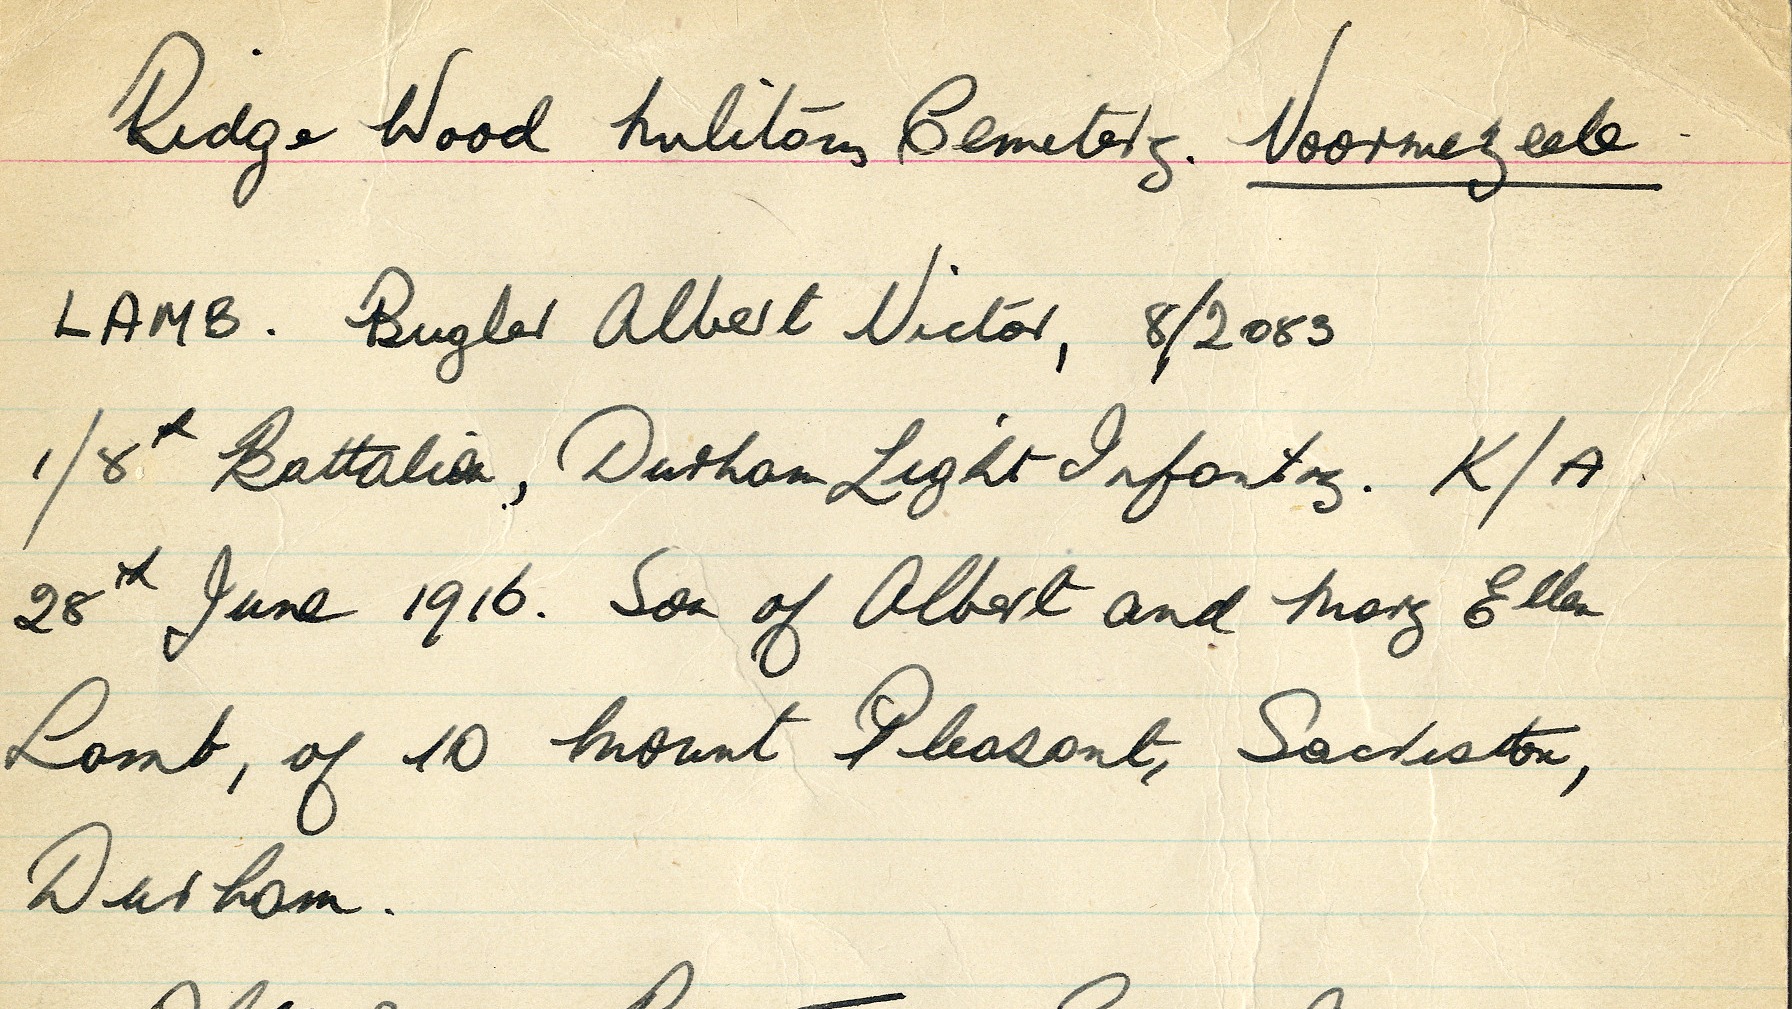 Ridge Wood Military Cemetery. Voormezeele
LAMB. Bugler Albert Victor, 8/2083
1/8th Battalion, Durham Light Infantry. K/A
28th June 1916. Son of Albert and Mary Ellen
Lamb, of 10 Mount Pleasant, Sacriston,
Durham.